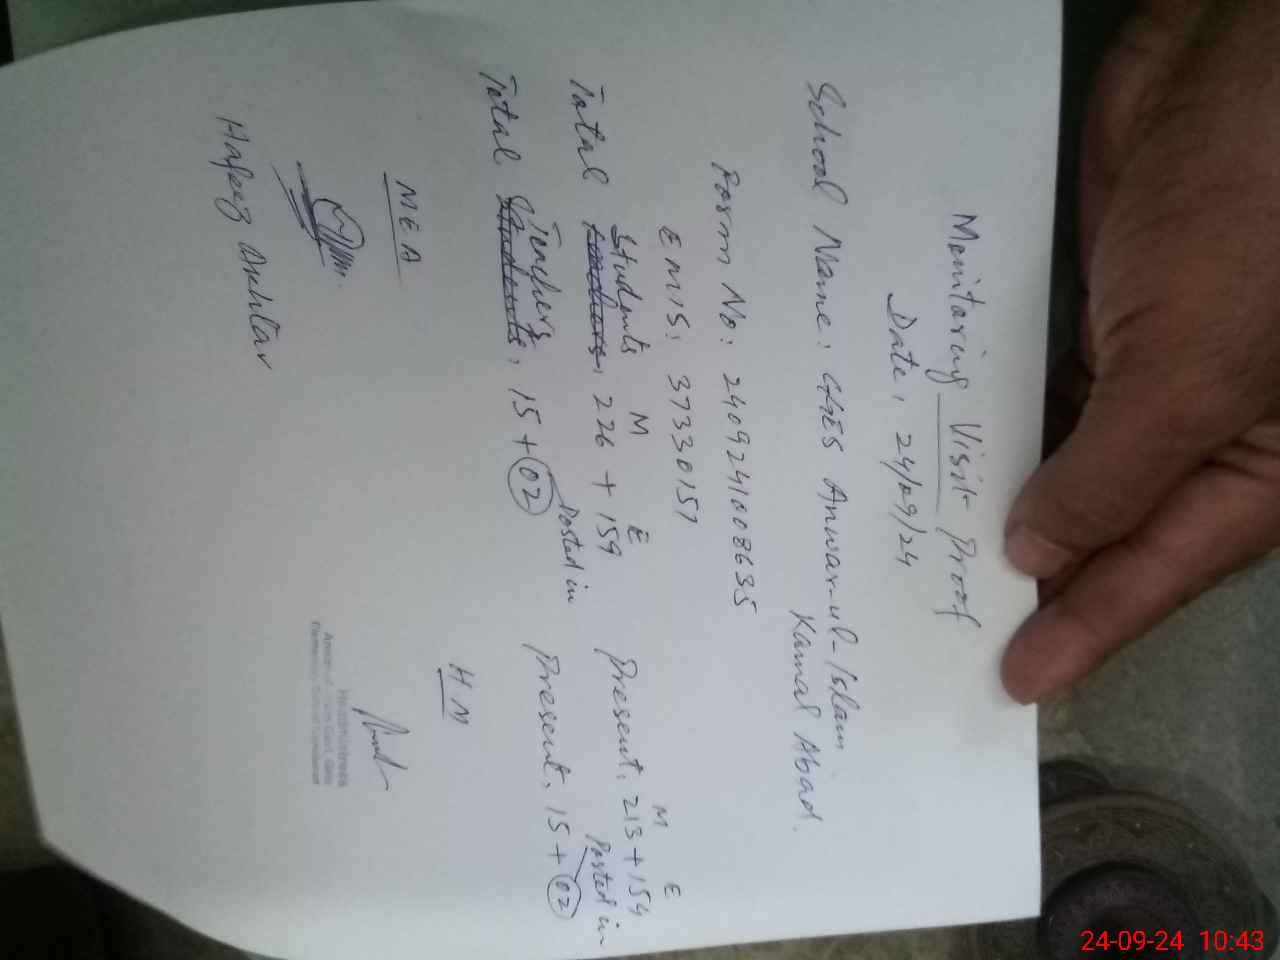 Monitoring Visit Proof
Date: 24/09/24
School Name: GGES Anwar-ul-Islam
Kamal Abad.
Form No: 2409241008635
EMIS: 37330151
M E M E
Total Students: 226 + 159 Present: 213 + 154
Posted in Posted in
Total Teachers: 15 + 02 Present: 15 + 02
MEA HM
Hafeez Akhtar
Headmistress
24-09-24 10:43